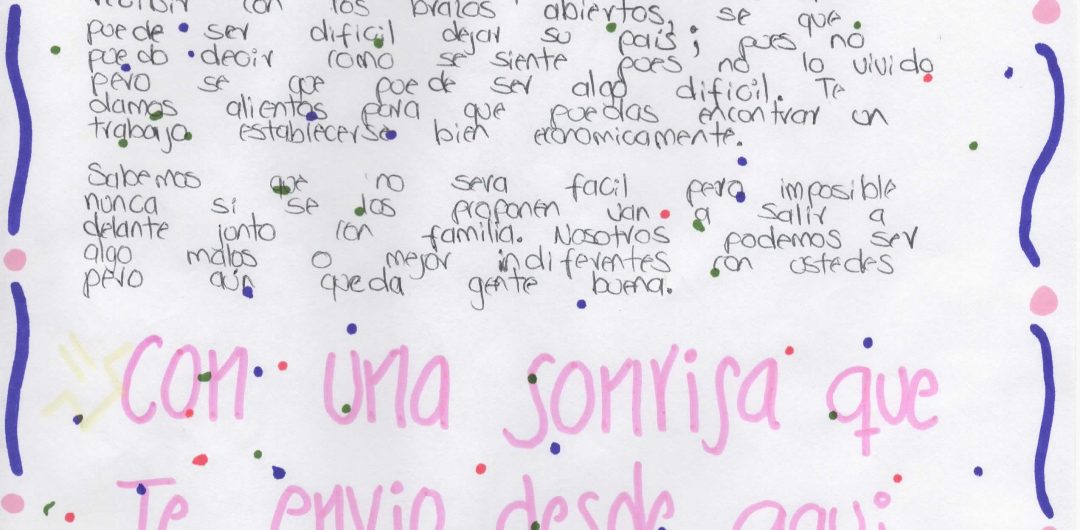 con los brazos abiertos, se que
puede ser dificil dejar su pais; pues no
puedo decir como se siente pues no lo vivido
pero se que puede ser algo dificil. Te
damos alientos para que puedas encontrar un
trabajo establecerse bien economicamente.
Sabemos que no sera facil pero imposible
nunca si se los proponen van a salir a
delante junto con familia. Nosotros podemos ser
algo malos o mejor indiferentes con ustedes
pero aún queda gente buena.
Con una sonrisa que
Te envio desde aqui